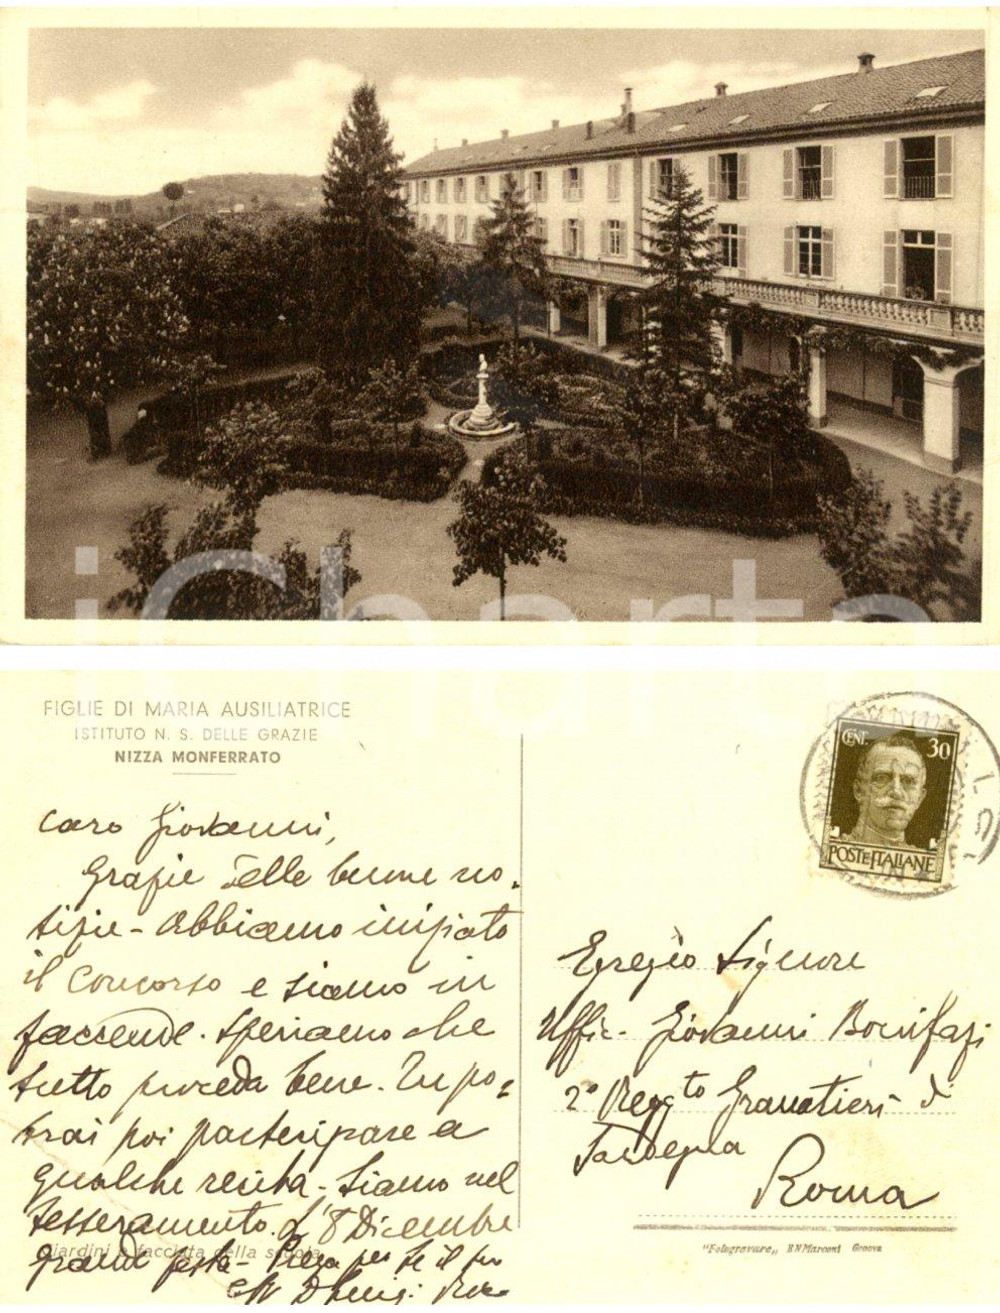 iCharta
FIGLIE DI MARIA AUSILIATRICE
ISTITUTO N. S. DELLE GRAZIE
NIZZA MONFERRATO
CENT. 30
POSTE ITALIANE
Caro Giovanni,
Grazie delle buone no-
tizie - Abbiamo iniziato
il Concorso e siamo in
faccende. Speriamo che
tutto proceda bene. Tu po-
trai poi partecipare a
qualche recita - Siamo nel
tesseramento. L'8 Dicembre
grande festa - Prega per te il tuo
Giardini e facciata della scuola
Egregio Signore
Uffic. Giovanni Bonifazi
2° Regg.to Granatieri di
Sardegna
Roma
"Fotogravure„ EN Marconi Genova